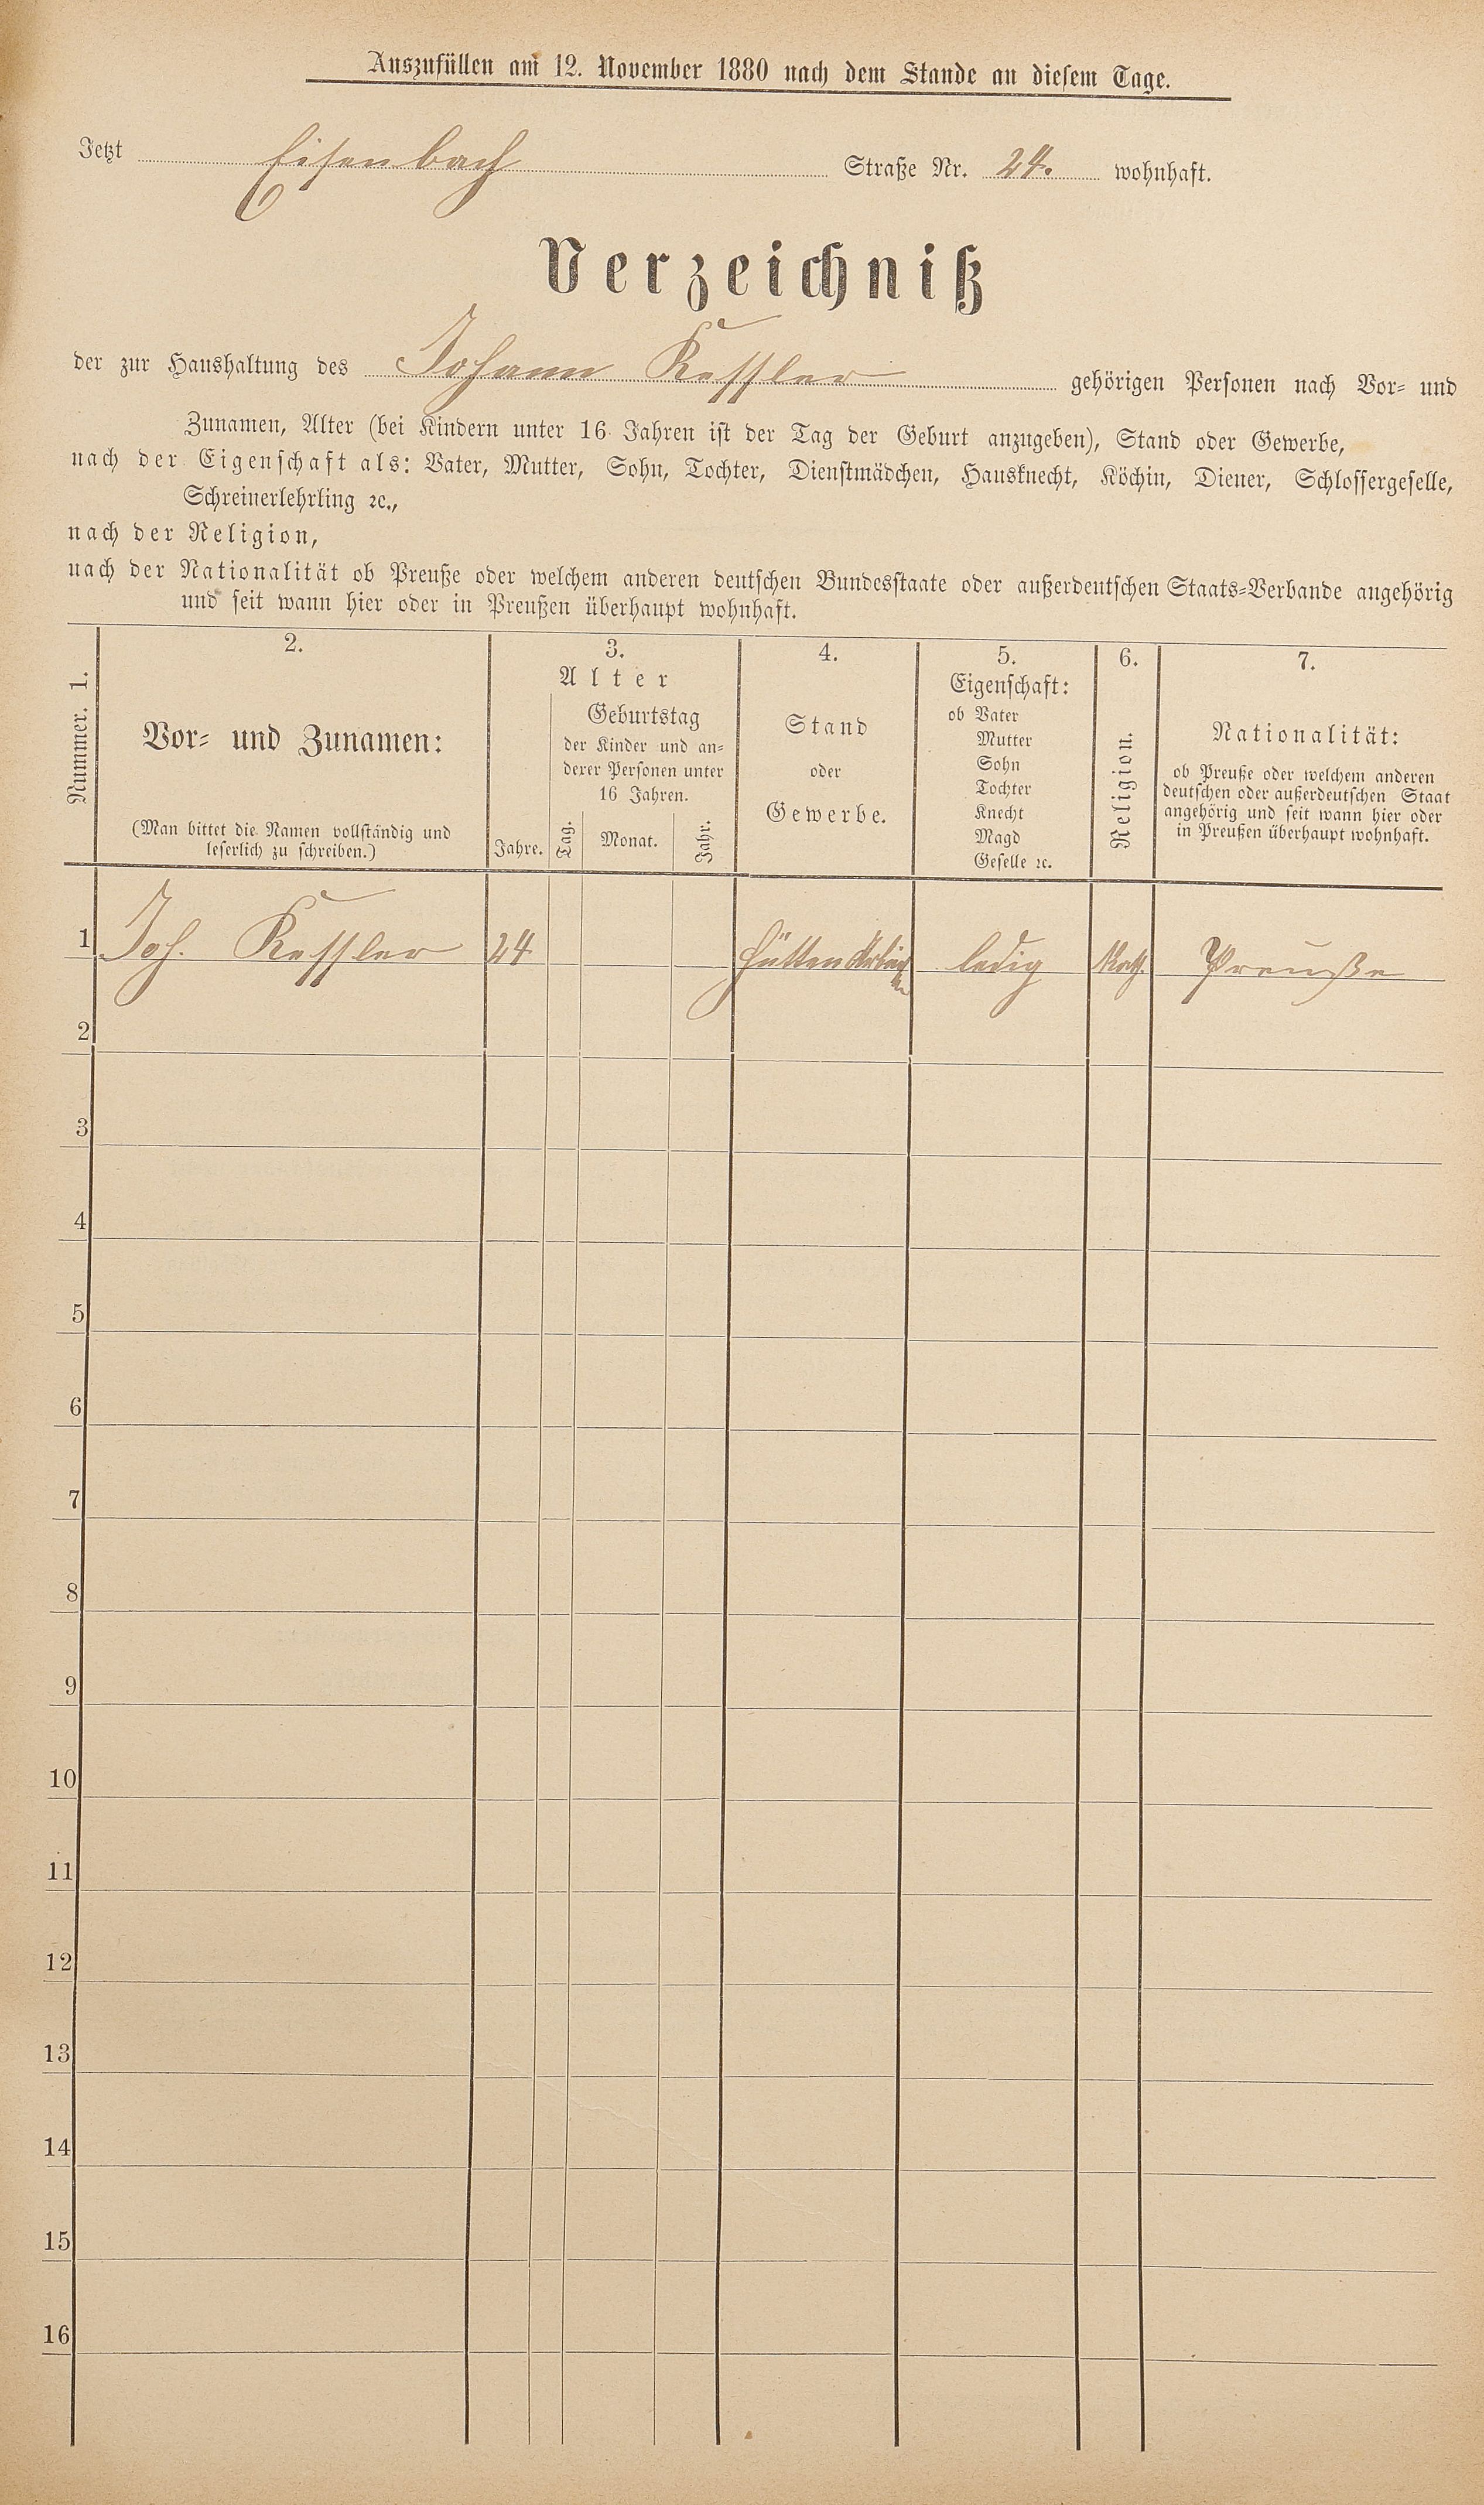 Auszufüllen am 12. November 1880 nach dem Stande an diesem Tage.
Jetzt Eisenbach Straße Nr. 24. wohnhaft.
Verzeichniß
der zur Haushaltung des Johann Kessler gehörigen Personen nach Vor- und
Zunamen, Alter (bei Kindern unter 16 Jahren ist der Tag der Geburt anzugeben), Stand oder Gewerbe,
nach der Eigenschaft als: Vater, Mutter, Sohn, Tochter, Dienstmädchen, Hausknecht, Köchin, Diener, Schlossergeselle,
Schreinerlehrling ꝛc.,
nach der Religion,
nach der Nationalität ob Preuße oder welchem anderen deutschen Bundesstaate oder außerdeutschen Staats-Verbande angehörig
und seit wann hier oder in Preußen überhaupt wohnhaft.
Nummer. 1.
2.
Vor- und Zunamen:
(Man bittet die Namen vollständig und
leserlich zu schreiben.)
3.
Alter
Jahre.
Geburtstag
der Kinder und an-
derer Personen unter
16 Jahren.
Tag.
Monat.
Jahr.
4.
Stand
oder
Gewerbe.
5.
Eigenschaft:
ob Vater
Mutter
Sohn
Tochter
Knecht
Magd
Geselle ꝛc.
6.
Religion.
7.
Nationalität:
ob Preuße oder welchem anderen
deutschen oder außerdeutschen Staat
angehörig und seit wann hier oder
in Preußen überhaupt wohnhaft.
1 Joh. Kessler 24 Hütten Arbeiter ledig Kath. Preuße
2
3
4
5
6
7
8
9
10
11
12
13
14
15
16